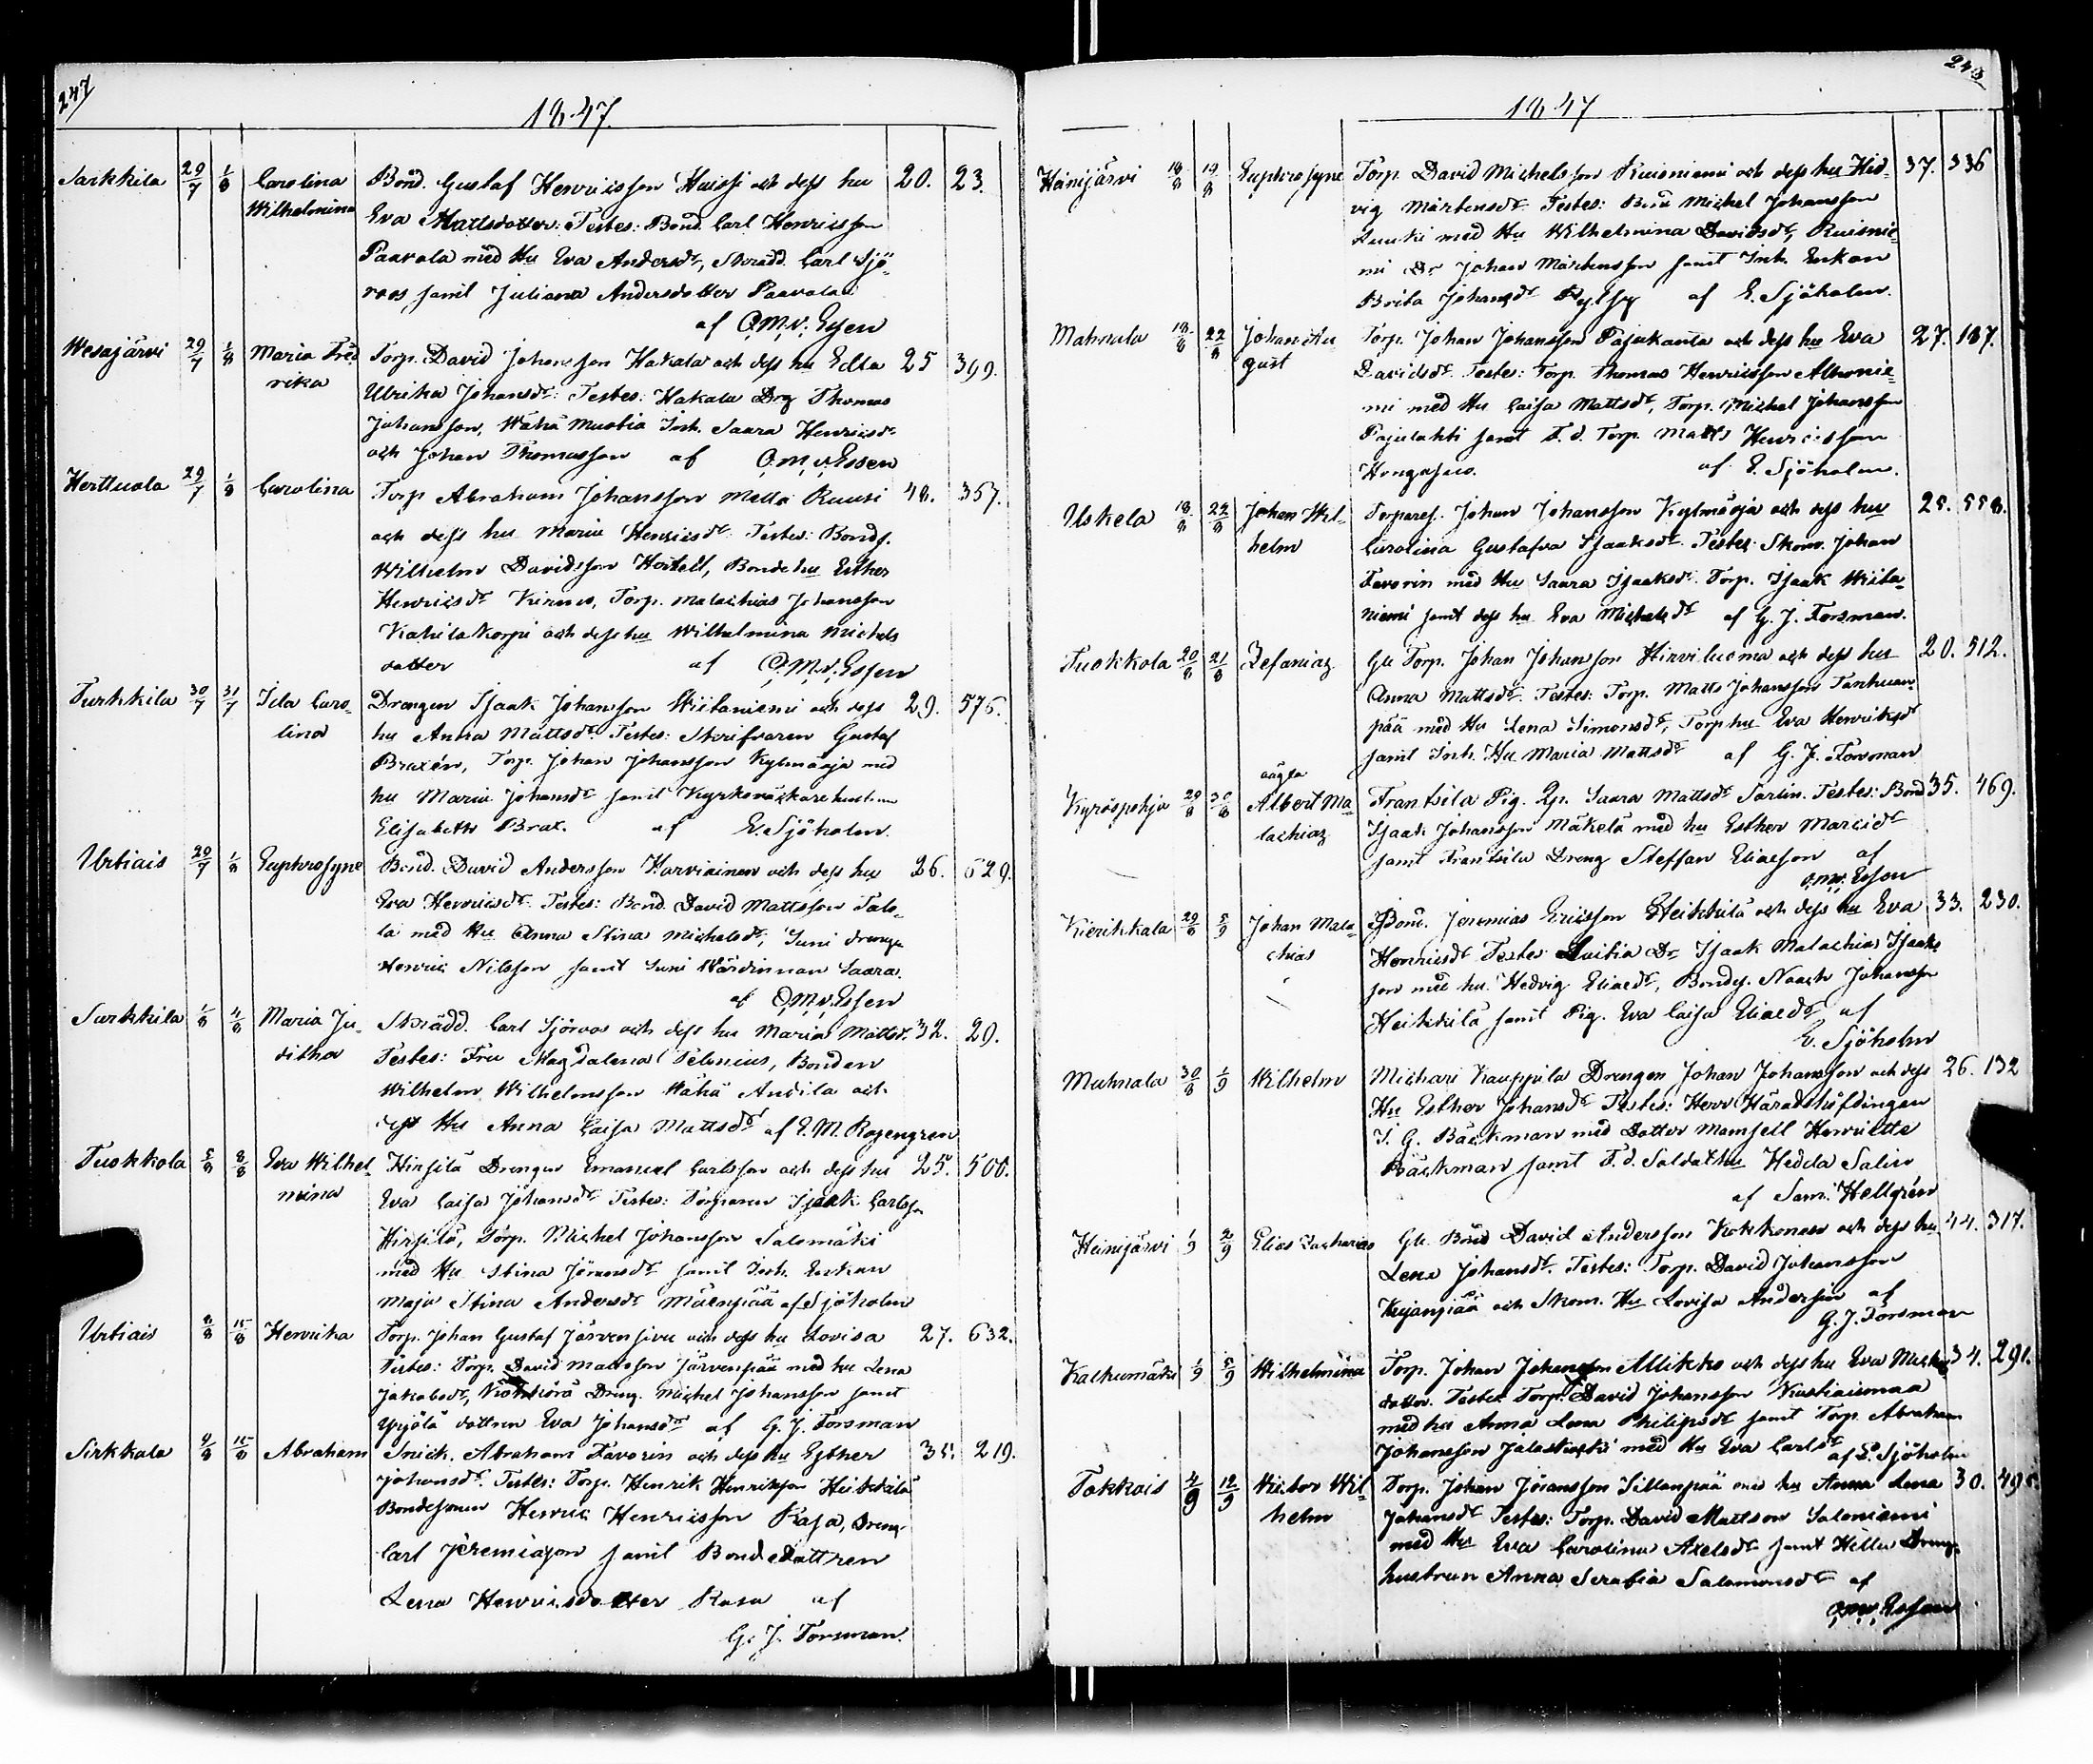 247
1847.
Sarkkila 29/7 1/8 Carolina Bond. Gustaf Henricsson Huissi och dess hu 20. 23.
Wilhelmina Eva Mattsdotter. Testes: Bond. Carl Henricsson
Paavola med Hu Eva Andersdr, Skrädd. Carl Sjö-
roos samt Juliana Andersdotter Paavola
af O.M.v. Essen
Wesajärvi 29/7 1/8 Maria Fred Torp. David Johansson Hakala och dess hu Edla 25 399.
rika Ulrika Johansdr. Testes: Hakala Drg Thomas
Johansson, Wähä Mustia Inh. Saara Henricsdr
och Johan Thomasson af O.M.v. Essen
Herttuala 29/7 1/8 Carolina Torp Abraham Johansson Mella Ruusi 48. 357.
och dess hu Maria Henricsdr Testes: Bonds.
Wilhelm Davidsson Hoitell, Bonde hu Esther
Henricsdr Kinnus, Torp. Malachias Johansson
Kahilakorpi och dess hu Wilhelmina Michels
dotter af O.M.v. Essen
Turkkila 30/7 31/7 Ida Caro- Drengen Isaak Johansson Wiitaniemi och dess 29. 576.
lina hu Anna Mattsdr. Testes: Skrifvaren Gustaf
Braxén, Torp. Johan Johansson Kylmäoja med
hu Maria Johansdr samt Kyrkoväktarehustrun
Elisabeth Brax. af E. Sjöholm.
Urtiais 29/7 1/8 Euphrosyne Bond. David Andersson Harviainen och dess hu 26. 629.
Eva Henricsdr. Testes: Bond. David Mattsson Tals-
la med Hu Anna Stina Michelsdr, Suni drengen
Henric Nilsson samt Suni Wärdinnan Saara.
af O.M.v. Essen
Sarkkila 1/8 4/8 Maria Ju- Skrädd. Carl Sjöroos och dess hu Maria Mattsd. 32. 29.
ditha Testes: Fru Magdalena Telenius, Bonden
Wilhelm Wilhelmsson Wähä Andila och
dess Hu Anna Caisa Mattsdr af E. M. Rosengren
Tuokkola 5/8 8/8 Eva Wilhel- Hirsilä Drengen Emanuel Carlsson och dess hu 25. 500.
mina Eva Caisa Johansdr Testes: Torparen Isaak Carlsson
Hirsilä, Torp. Michel Johansson Salomäki
med Hu Stina Jöransdr samt Inh. Enkan
Maja Stina Andersdr Mäenpää af Sjöholm
Urtiais 8/8 15/8 Henrika Torp. Johan Gustaf Järvensivu och dess hu Lovisa 27. 632.
Testes: Torp. David Mattsson Järvenpää med hu Lena
Jakobsdr, Dreng. Michel Johansson samt
Yrjölä dottren Eva Johansdr af G. J. Forsman
Sirkkala 9/8 15/8 Abraham Snick. Abraham Favorin och dess hu Esther 35. 219.
Johansdr. Testes: Torp. Henrik Henriksson Heikkilä
Bondesonen Henric Henricsson Rasa, Dreng.
Carl Jeremiasson samt Bondedottren
Lena Henricsdotter Rasa af
G. J. Forsman.
248
1847
Heinijärvi 18/8 19/8 Euphrosyne Torp. David Michelsson Ruisniemi och dess hu Hed- 37. 336
vig Mårtensdr. Testes: Bond Michel Johansson
Luuki med Hu Wilhelmina Davidsdr, Ruisnie-
mi Dr Johan Mårtensson samt Inh. Enkan
Brita Johansdr af E. Sjöholm.
Mahnala 18/8 22/8 Johan Au- Torp. Johan Johansson Pajukanta och dess hu Eva 27. 187.
gust Davidsdr. Testes: Torp. Thomas Henricsson Alhonie-
mi med Hu Caisa Mattsdr, Torp. Michel Johansson
Pajulahti samt F.d. Torp. Matts Henricsson
Hongasuo. af E. Sjöholm.
Uskela 18/8 22/8 Johan Wil- Torparef. Johan Johansson Kylmäoja och dess hu 25. 558.
helm Carolina Gustafva Isaaksdr. Testes: Skom. Johan
Favorin med Hu Saara Isaaksdr Torp. Isaak Wiita-
niemi samt dess hu Eva Michelsdr af G. J. Forsman.
Tuokkola 20/8 21/8 Zefanias Gle Torp. Johan Johansson Hirviluoma och dess hu 20. 512.
Anna Mattsdr. Testes: Torp. Matts Johansson Tanhuan-
pää med Hu Lena Simonsdr, Torp hu Eva Henriksdr
samt Inh. Hu Maria Mattsdr af G. J. Forsman
oägta
Kyröspohja 29/8 30/8 Albert Ma Frantsila Pig. Qp. Saara Mattsdr Sarlin. Testes: Bond 35. 469.
lachias Isaak Johansson Mäkelä med hu Esther Marcidr
samt Frantsila Dreng Steffan Eliasson af
O.M.v. Essen
Kierikkala 29/8 5/9 Johan Mala- Bond. Jeremias Ericsson Heikkilä och dess hu Eva 33. 230.
chias Henricsdr. Testes Dr Isaak Malachias Isaaks
son med hu Hedvig Eliaedr, Bonds. Noach Johansson
Heikkilä samt Pig. Eva Caisa Eliaedr af
E. Sjöholm
Mahnala 30/8 1/9 Wilhelm Michari Kauppila Drengen Johan Johansson och dess 26. 132
Hu Esther Johansdr Testes: Herr Häradshöfdingen
I. G. Bäckman med Dotter Mamsell Henriette
Bäckman samt F.d. Soldathu Hedda Salin
af Sam. Hellgrén
Heinijärvi 1/9 2/9 Elias Zacharias Gle Bond David Andersson Kokkonen och dess hu 44. 317.
Lena Johansdr. Testes: Torp. David Johansson
Kujanpää och Skom. Hu Lovisa Andersin af
G. J. Forsman
Kalkumäki 1/9 5/9 Wilhelmina Torp. Johan Johansson Mikko och dess hu Eva Michels 34. 291.
dotter. Testes Torp. David Johansson
med hu Anna Lena Philipsdr samt Torp. Abraham
Johansson med Hu Eva Carlsdr af E. Sjöholm
Tokkois 4/9 12/9 Victor Wil- Torp. Johan Jöransson Sillanpää med hu Anna Lena 30. 495.
helm Johansdr Testes: Torp. David Mattson Saloniemi
med Hu Eva Carolina Axelsdr samt Hillu Dreng-
hustrun Anna Serafia Salomonsdr af
O.M.v. Essen